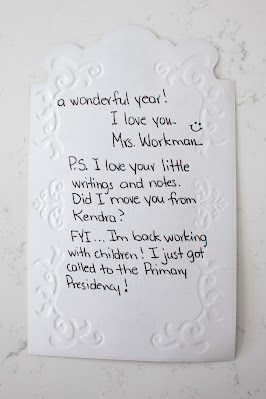 a wonderful year!
I love you.
Mrs. Workman
P.S. I love your little
writings and notes.
Did I move you from
Kendra?
FYI... I'm back working
with children! I just got
called to the Primary
Presidency!